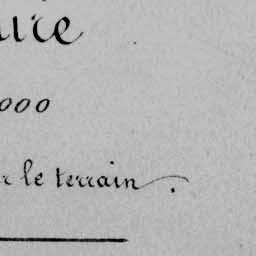 ure
000
r le terrain.